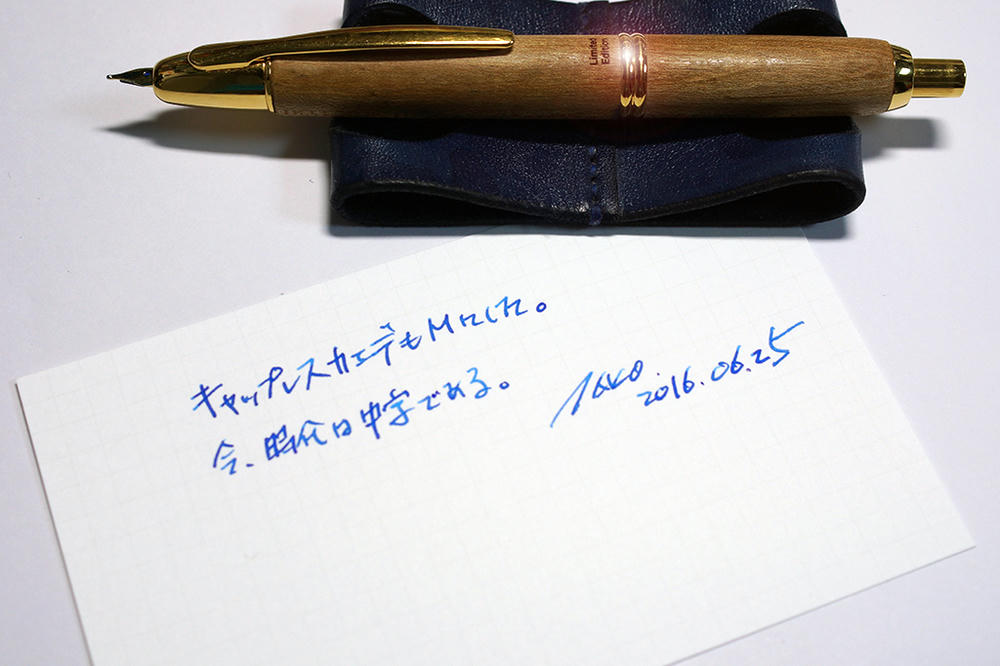 Limited
Edition
キャップレスカエデもMにした。
今、時代は中字である。
2016.06.25